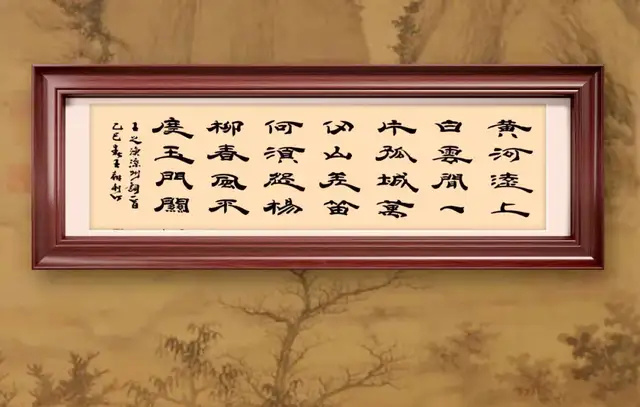 黃河遠上
白雲間一
片孤城萬
仞山羌笛
何須怨楊
柳春風不
度玉門關
王之渙涼州詞一首